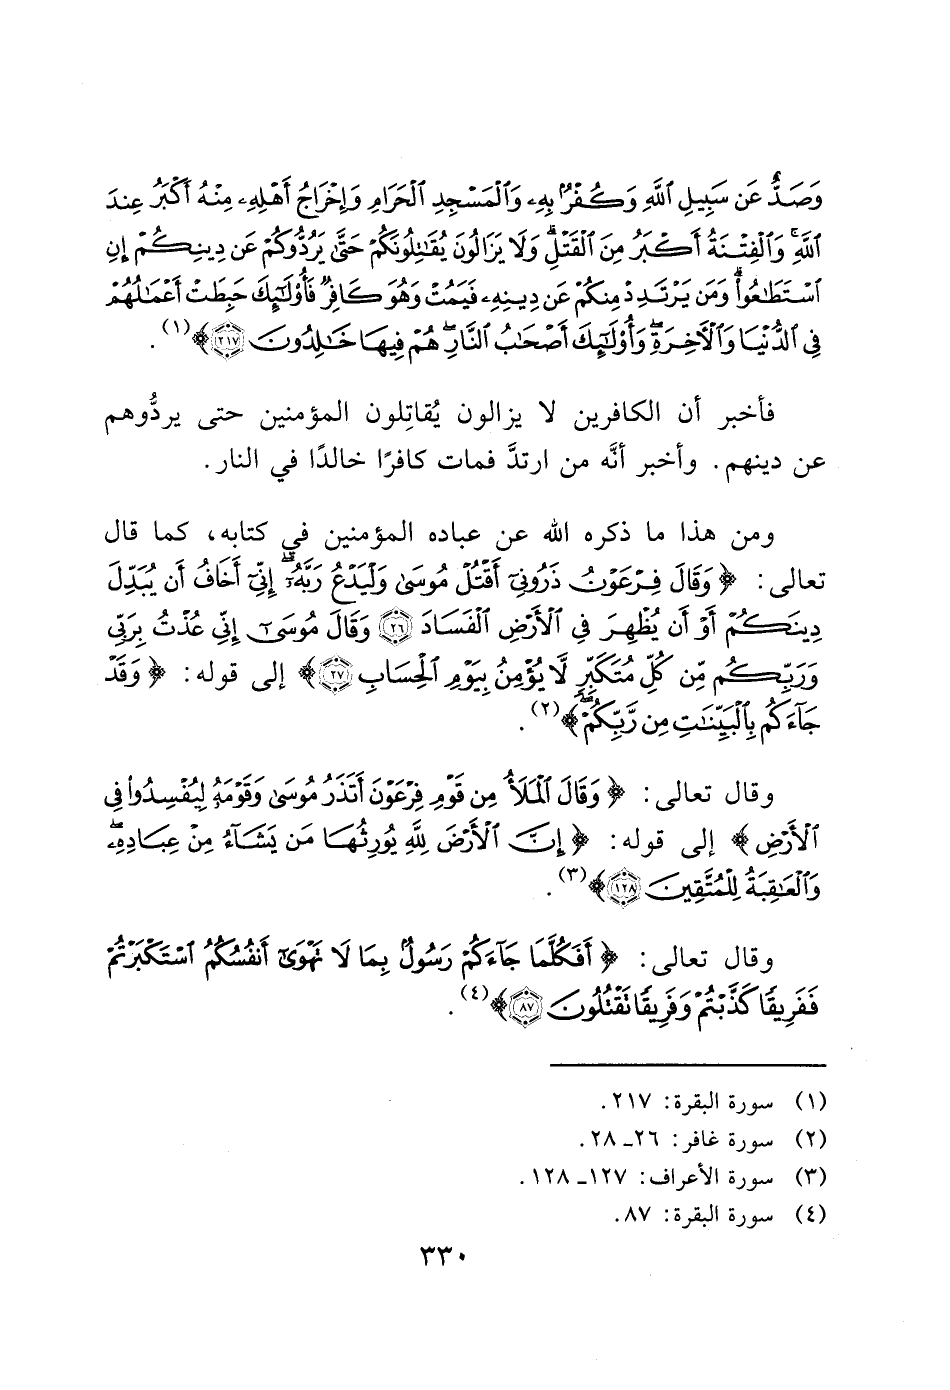 وَصَدٌّ عَن سَبِيلِ ٱللَّهِ وَكُفْرٌۢ بِهِۦ وَٱلْمَسْجِدِ ٱلْحَرَامِ وَإِخْرَاجُ أَهْلِهِۦ مِنْهُ أَكْبَرُ عِندَ
ٱللَّهِ ۚ وَٱلْفِتْنَةُ أَكْبَرُ مِنَ ٱلْقَتْلِ ۗ وَلَا يَزَالُونَ يُقَٰتِلُونَكُمْ حَتَّىٰ يَرُدُّوكُمْ عَن دِينِكُمْ إِنِ
ٱسْتَطَٰعُوا۟ ۚ وَمَن يَرْتَدِدْ مِنكُمْ عَن دِينِهِۦ فَيَمُتْ وَهُوَ كَافِرٌ فَأُو۟لَٰٓئِكَ حَبِطَتْ أَعْمَٰلُهُمْ
فِى ٱلدُّنْيَا وَٱلْـَٔاخِرَةِ ۖ وَأُو۟لَٰٓئِكَ أَصْحَٰبُ ٱلنَّارِ ۖ هُمْ فِيهَا خَٰلِدُونَ ﴿٢١٧﴾ ﴾(١).
فأخبر أن الكافرين لا يزالون يُقاتِلون المؤمنين حتى يردُّوهم
عن دينهم. وأخبر أنَّه من ارتدَّ فمات كافرًا خالدًا في النار.
ومن هذا ما ذكره الله عن عباده المؤمنين في كتابه، كما قال
تعالى: ﴿ وَقَالَ فِرْعَوْنُ ذَرُونِىٓ أَقْتُلْ مُوسَىٰ وَلْيَدْعُ رَبَّهُۥٓ ۖ إِنِّىٓ أَخَافُ أَن يُبَدِّلَ
دِينَكُمْ أَوْ أَن يُظْهِرَ فِى ٱلْأَرْضِ ٱلْفَسَادَ ﴿٢٦﴾ وَقَالَ مُوسَىٰٓ إِنِّى عُذْتُ بِرَبِّى
وَرَبِّكُم مِّن كُلِّ مُتَكَبِّرٍ لَّا يُؤْمِنُ بِيَوْمِ ٱلْحِسَابِ ﴿٢٧﴾ ﴾ إلى قوله: ﴿ وَقَدْ
جَآءَكُم بِٱلْبَيِّنَٰتِ مِن رَّبِّكُمْ ۖ ﴾(٢).
وقال تعالى: ﴿ وَقَالَ ٱلْمَلَأُ مِن قَوْمِ فِرْعَوْنَ أَتَذَرُ مُوسَىٰ وَقَوْمَهُۥ لِيُفْسِدُوا۟ فِى
ٱلْأَرْضِ ﴾ إلى قوله: ﴿ إِنَّ ٱلْأَرْضَ لِلَّهِ يُورِثُهَا مَن يَشَآءُ مِنْ عِبَادِهِۦ ۖ
وَٱلْعَٰقِبَةُ لِلْمُتَّقِينَ ﴿١٢٨﴾ ﴾(٣).
وقال تعالى: ﴿ أَفَكُلَّمَا جَآءَكُمْ رَسُولٌۢ بِمَا لَا تَهْوَىٰٓ أَنفُسُكُمُ ٱسْتَكْبَرْتُمْ
فَفَرِيقًا كَذَّبْتُمْ وَفَرِيقًا تَقْتُلُونَ ﴿٨٧﴾ ﴾(٤).
(١) سورة البقرة: ٢١٧.
(٢) سورة غافر: ٢٦ـ ٢٨.
(٣) سورة الأعراف: ١٢٧ـ ١٢٨.
(٤) سورة البقرة: ٨٧.
٣٣٠